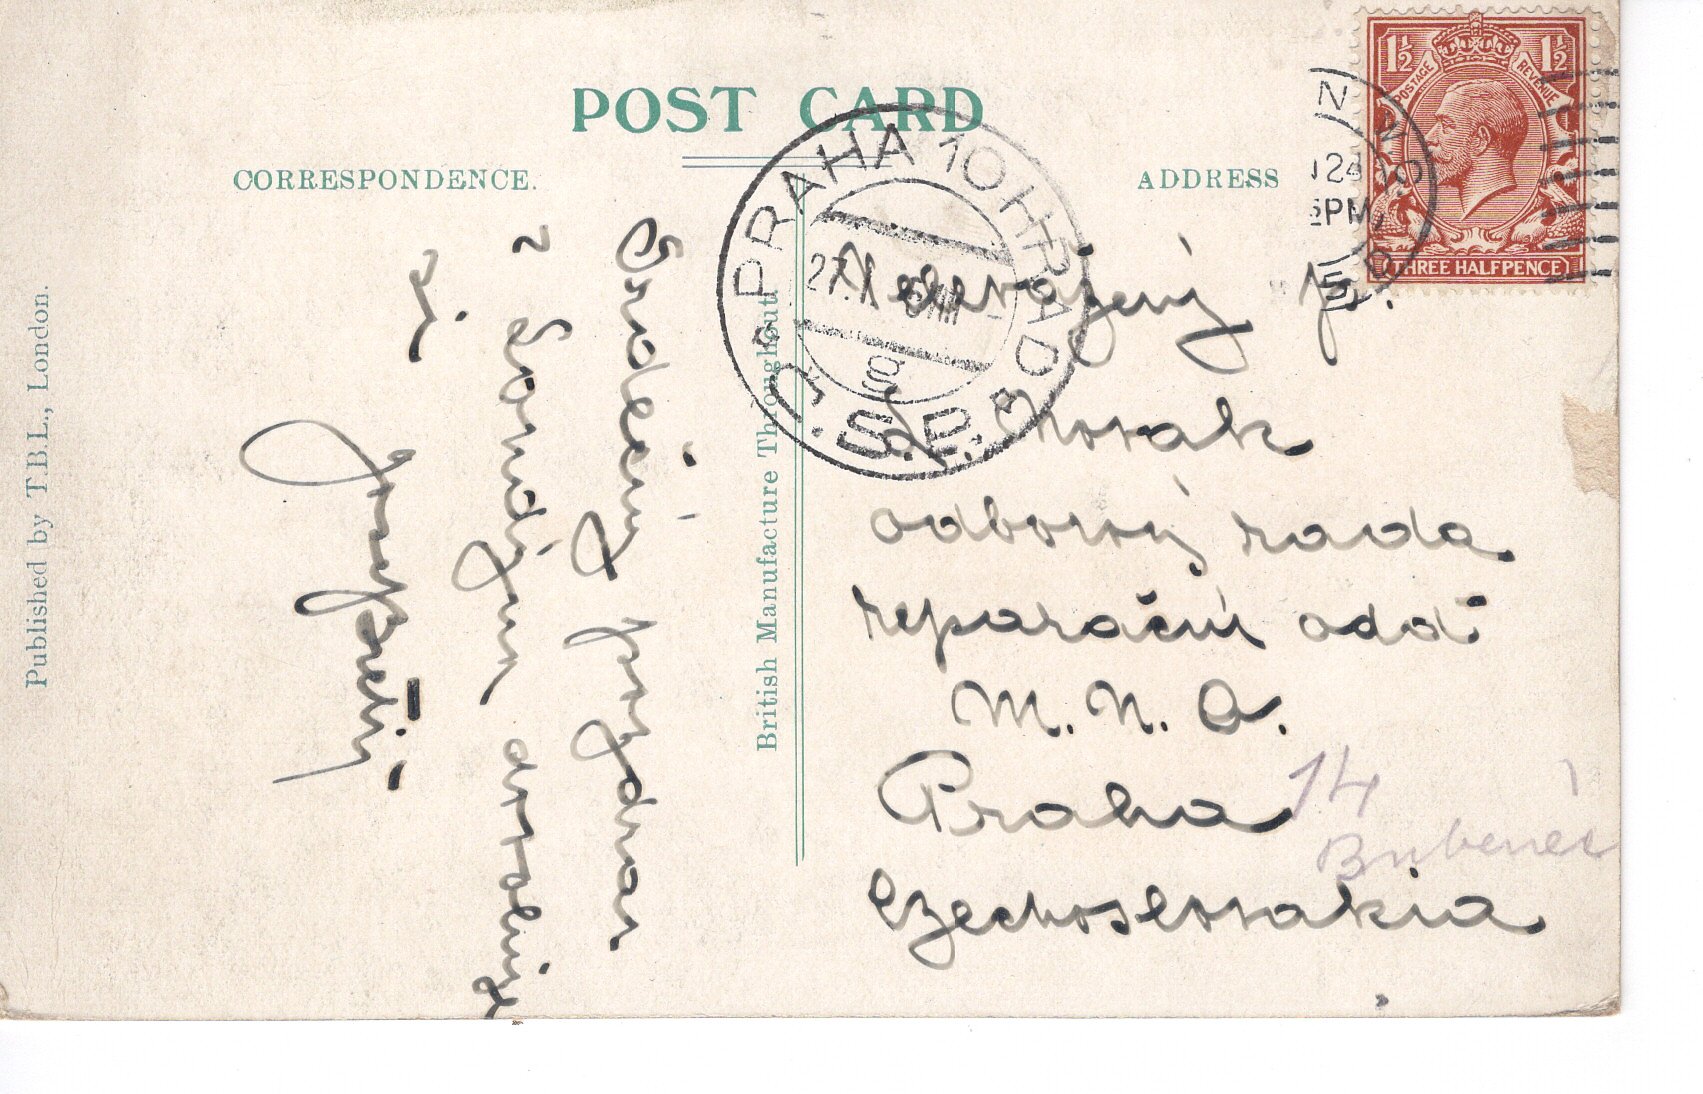 POST CARD
CORRESPONDENCE.
ADDRESS
Published by T.B.L., London.
British Manufacture Throughout
1½ 1½
POSTAGE REVENUE
THREE HALFPENCE
N
24
PM
PRAHA 10 HRAD
27.
8g
Č.S.P.
Srdečný pozdrav
z Londýna
Vážený p.
odborový rada
reparační odd.
M. N. O.
Praha 14
Bubeneč
Czechoslovakia